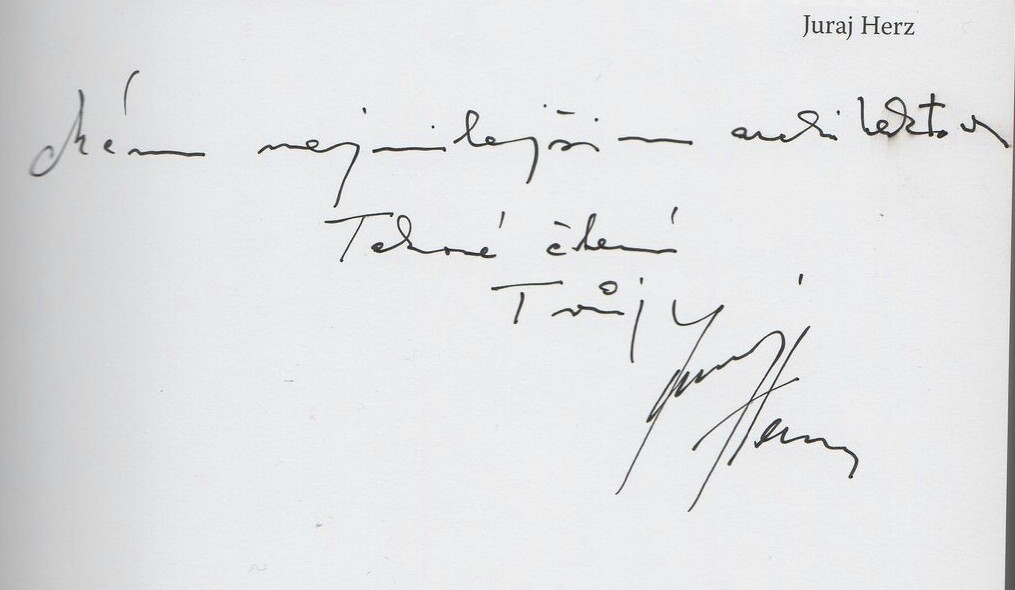 Juraj Herz
mému nejmilejšímu architektovi
čtení
Tvůj Juraj
Herz